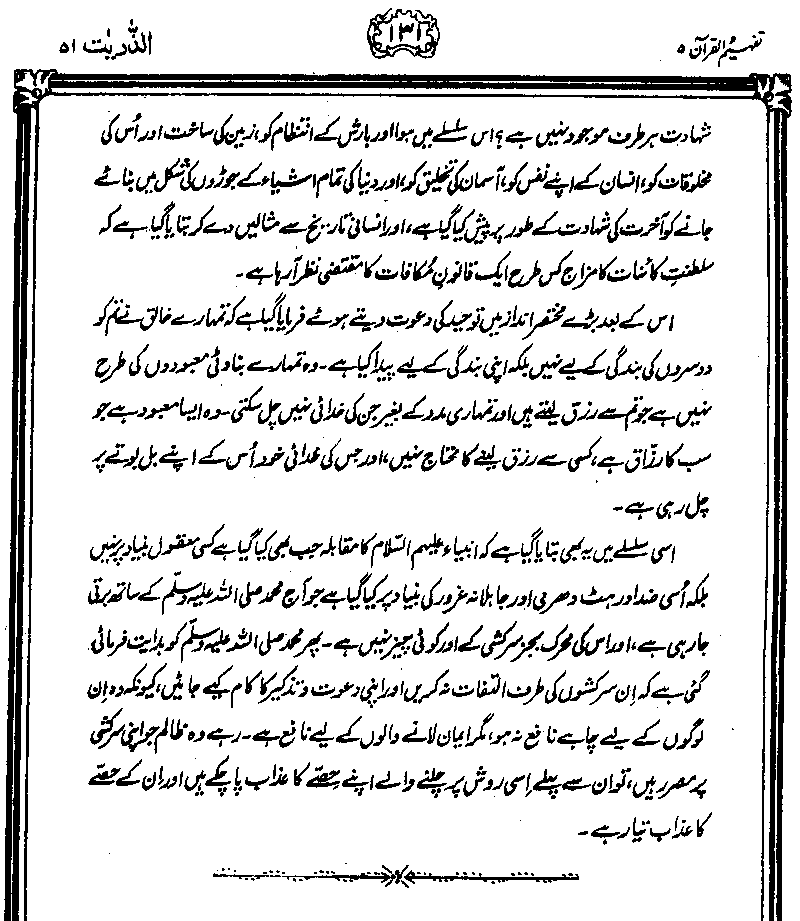 تفہیم القرآن ۵
۱۳۱
الذّٰریٰت ۵۱
شہادت ہر طرف موجود نہیں ہے؟ اس سلسلے میں ہوا اور بارش کے انتظام کو، زمین کی ساخت اور اُس کی
مخلوقات کو، انسان کے اپنے نفس کو، آسمان کی تخلیق کو، اور دنیا کی تمام اشیاء کے جوڑوں کی شکل میں بنائے
جانے کو آخرت کی شہادت کے طور پر پیش کیا گیا ہے، اور انسانی تاریخ سے مثالیں دے کر بتایا گیا ہے کہ
سلطنتِ کائنات کا مزاج کس طرح ایک قانونِ مُکافات کا مقتضی نظر آرہا ہے۔
اس کے بعد بڑے مختصر انداز میں توحید کی دعوت دیتے ہوئے فرمایا گیا ہے کہ تمہارے خالق نے تم کو
دوسروں کی بندگی کے لیے نہیں بلکہ اپنی بندگی کے لیے پیدا کیا ہے۔ وہ تمہارے بناوٹی معبودوں کی طرح
نہیں ہے جو تم سے رزق لیتے ہیں اور تمہاری مدد کے بغیر جن کی خدائی نہیں چل سکتی۔ وہ ایسا معبود ہے جو
سب کا رزّاق ہے، کسی سے رزق لینے کا محتاج نہیں، اور جس کی خدائی خود اُس کے اپنے بل بوتے پر
چل رہی ہے۔
اسی سلسلے میں یہ بھی بتایا گیا ہے کہ انبیاء علیہم السّلام کا مقابلہ جب بھی کیا گیا ہے کسی معقول بنیاد پر نہیں
بلکہ اُسی ضد اور ہٹ دھرمی اور جاہلانہ غرور کی بنیاد پر کیا گیا ہے جو آج محمد صلی اللہ علیہ وسلّم کے ساتھ برتی
جارہی ہے، اور اس کی محرک بجز سرکشی کے اور کوئی چیز نہیں ہے۔ پھر محمد صلی اللہ علیہ وسلّم کو ہدایت فرمائی
گئی ہے کہ اِن سرکشوں کی طرف التفات نہ کریں اور اپنی دعوت و تذکیر کا کام کیے جائیں، کیونکہ وہ اِن
لوگوں کے لیے چاہے نافع نہ ہو، مگر ایمان لانے والوں کے لیے نافع ہے۔ رہے وہ ظالم جو اپنی سرکشی
پر مصر ہیں، تو ان سے پہلے اِسی روش پر چلنے والے اپنے حِصّے کا عذاب پاچکے ہیں اور اِن کے حصّے
کا عذاب تیار ہے۔